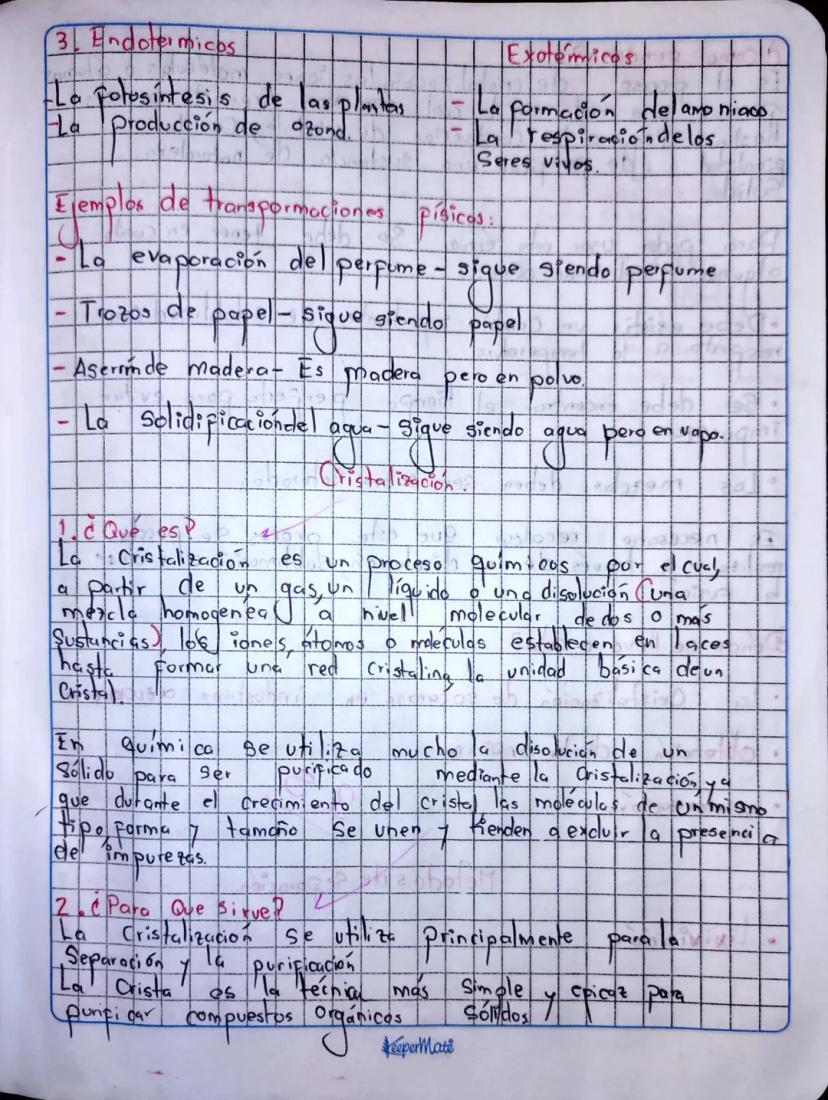 3. Endotermicos Exotémicos
-La fotosíntesis de las plantas - La formación del amoniaco
-La producción de ozono. - La respiración de los
Seres vivos.
Ejemplos de transformaciones físicos:
- La evaporación del perfume - sigue siendo perfume
- Trozos de papel - sigue siendo papel
- Aserrín de madera - Es madera pero en polvo.
- La solidificación del agua - sigue siendo agua pero en vapo.
Cristalización.
1. ¿Qué es?
La Cristalización es un proceso químicos por el cual,
a partir de un gas, un líquido o una disolución (una
mezcla homogenéa a nivel molecular de dos o más
Sustancias), los iones, átomos o moléculas establecen en laces
hasta formar una red cristalina, la unidad básica de un
Cristal.
En química se utiliza mucho la disolución de un
Sólido para ser purificado mediante la Cristalización, ya
que durante el crecimiento del cristal las moléculas de un mismo
tipo, forma y tamaño se unen y tienden a excluir la presencia
de impurezas.
2. ¿Para Que sirve?
La Cristalización se utiliza principalmente para la
Separación y la purificación
La Crista es la técnica más simple y eficaz para
purificar compuestos Orgánicos sólidos
KeeperMate